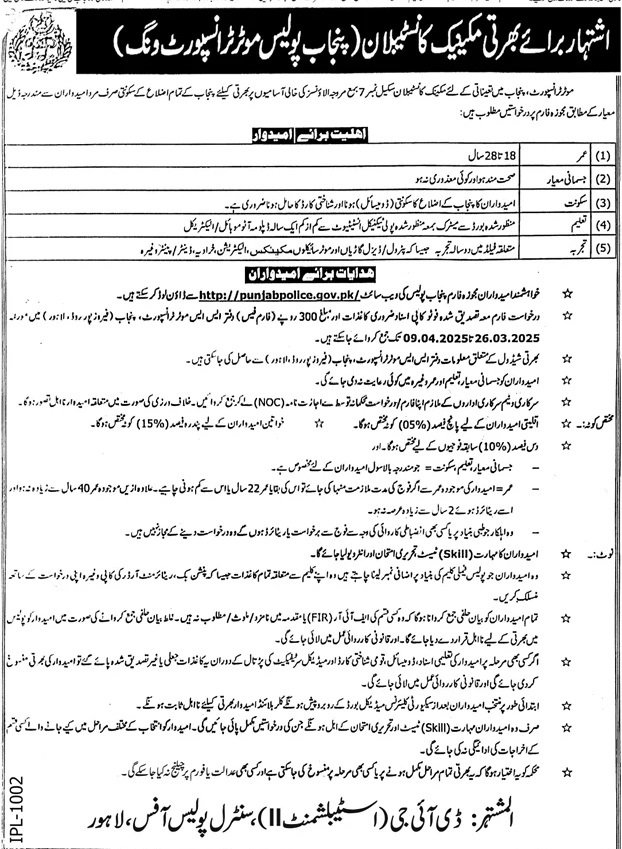 اشتہار برائے بھرتی مکینیک کانسٹیبلان (پنجاب پولیس موٹر ٹرانسپورٹ ونگ)
موٹر ٹرانسپورٹ، پنجاب میں تعیناتی کے لئے مکینیک کانسٹیبلان سکیل نمبر 7 بمع مروجہ الاؤنسز کی خالی آسامیوں پر بھرتی کیلئے پنجاب کے تمام اضلاع کے سکونتی صرف مرد امیدواران سے مندرجہ ذیل
معیار کے مطابق مجوزہ فارم پر درخواستیں مطلوب ہیں:
اہلیت برائے امیدوار
(1) عمر 18 تا 28 سال
(2) جسمانی معیار صحت مند ہو اور کوئی معذوری نہ ہو
(3) سکونت امیدواران کا پنجاب کے اضلاع کا سکونتی (ڈومیسائل) ہونا اور شناختی کارڈ کا حامل ہونا ضروری ہے۔
(4) تعلیم منظور شدہ بورڈ سے میٹرک بمعہ منظور شدہ پولی ٹیکنیکل انسٹیٹیوٹ سے کم از کم ایک سالہ ڈپلومہ آٹو موبائل / الیکٹریکل
(5) تجربہ متعلقہ فیلڈ میں دو سالہ تجربہ جیسا کہ پٹرول / ڈیزل گاڑیاں اور موٹر سائیکلوں مکینکس، الیکٹریشن، خرادیہ، ڈینٹر / پینٹر وغیرہ
ہدایات برائے امیدواران
☆ خواہشمند امیدواران مجوزہ فارم پنجاب پولیس کی ویب سائٹ http://punjabpolice.gov.pk/ سے ڈاؤن لوڈ کر سکتے ہیں۔
☆ درخواست فارم معہ تصدیق شدہ فوٹو کاپی اسناد ضروری کاغذات اور مبلغ 300 روپے (فارم فیس) دفتر ایس ایس موٹر ٹرانسپورٹ، پنجاب (فیروز پور روڈ، لاہور) میں مورخہ
26.03.2025 تا 09.04.2025 تک جمع کروائے جا سکتے ہیں۔
☆ بھرتی شیڈول کے متعلق معلومات دفتر ایس ایس موٹر ٹرانسپورٹ، پنجاب (فیروز پور روڈ، لاہور) سے حاصل کی جا سکتی ہیں۔
☆ امیدواران کو جسمانی معیار، تعلیم اور عمر وغیرہ میں کوئی رعایت نہ دی جائے گی۔
☆ سرکاری و نیم سرکاری اداروں کے ملازم اپنا فارم / درخواست محکمانہ توسط سے اجازت نامہ (NOC) لے کر جمع کروائیں۔ خلاف ورزی کی صورت میں متعلقہ امیدوار نا اہل تصور ہو گا۔
مختص کوٹہ:۔ ☆ اقلیتی امیدواران کے لیے پانچ فیصد (05%) کوٹہ مختص ہو گا۔ ☆ خواتین امیدواران کے لیے پندرہ فیصد (15%) کوٹہ مختص ہو گا۔
☆ دس فیصد (10%) سابقہ فوجیوں کے لیے مختص ہو گا۔ اور
– جسمانی معیار، تعلیم، سکونت = جو مندرجہ بالا سول امیدواران کے لئے مخصوص ہے۔
– عمر = امیدوار کی موجودہ عمر سے اگر فوج کی مدت ملازمت منہا کی جائے تو اس کی بقایا عمر 22 سال یا اس سے کم ہونی چاہیے۔ علاوہ ازیں موجودہ عمر 40 سال سے زیادہ نہ ہو اور
اسے ریٹائرڈ ہوئے 2 سال سے زیادہ عرصہ نہ ہو۔
– وہ اہلکار جو طبی بنیاد پر یا کسی بھی انضباطی کاروائی کی وجہ سے فوج سے برخواست یا ریٹائرڈ ہوں گے وہ درخواست دینے کے مجاز نہیں ہیں۔
نوٹ:۔ ☆ امیدواران کا مہارت (Skill) ٹیسٹ، تحریری امتحان اور انٹرویو لیا جائے گا۔
☆ وہ امیدواران جو پولیس فیملی کلیم کی بنیاد پر اضافی نمبر لینا چاہتے ہیں وہ اپنے کلیم سے متعلقہ تمام کاغذات جیسا کہ پنشن بک، ریٹائرمنٹ آرڈر کی کاپی وغیرہ اپنی درخواست کے ساتھ
منسلک کریں۔
☆ تمام امیدواران کو بیان حلفی جمع کروانا ہو گا کہ وہ کسی قسم کی ایف آئی آر (FIR) یا مقدمہ میں نامزد / ملوث / مطلوب نہ ہیں۔ غلط بیان حلفی جمع کروانے کی صورت میں امیدوار کو پولیس
میں بھرتی کے لیے نااہل قرار دے دیا جائے گا۔ اور قانونی کاروائی عمل میں لائی جائے گی۔
☆ اگر کسی بھی مرحلہ پر امیدوار کی تعلیمی اسناد، ڈومیسائل، قومی شناختی کارڈ اور میڈیکل سرٹیفکیٹ کی پڑتال کے دوران یہ کاغذات جعلی یا غیر تصدیق شدہ پائے گئے تو امیدوار کی بھرتی منسوخ
کر دی جائے گی اور قانونی کارروائی عمل میں لائی جائے گی۔
☆ ابتدائی طور پر منتخب امیدواران بعد از سیکیورٹی کلیئرنس میڈیکل بورڈ کے روبرو پیش ہونگے کلر بلائنڈ امیدوار بھرتی کیلئے نااہل ثابت ہونگے۔
☆ صرف وہ امیدواران مہارت (Skill) ٹیسٹ اور تحریری امتحان کے اہل ہونگے جن کی درخواستیں مکمل پائی جائیں گی۔ امیدوار کو انتخاب کے مختلف مراحل میں کیے جانے والے کسی قسم
کے اخراجات کی ادائیگی نہ کی جائے گی۔
☆ محکمہ کو یہ اختیار ہو گا کہ یہ بھرتی تمام مراحل مکمل ہونے پر یا کسی بھی مرحلہ پر منسوخ کی جا سکتی ہے اور کسی بھی عدالت یا فورم پر چیلنج نہ کیا جا سکے گا۔
المشتہر: ڈی آئی جی (اسٹیبلشمنٹ II)، سنٹرل پولیس آفس، لاہور
IPL-1002